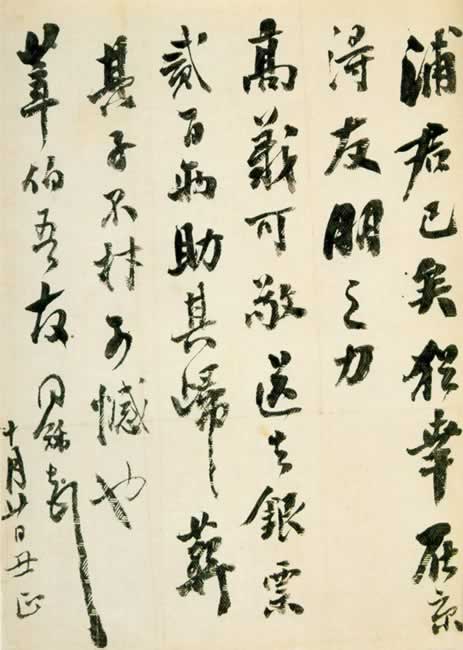 浦君已矣猶幸在京
得友朋之力
高義可敬送去銀票
貳百兩助其歸葬
其子不材可憾也
莘伯吾友 同龢
十月廿日丑正